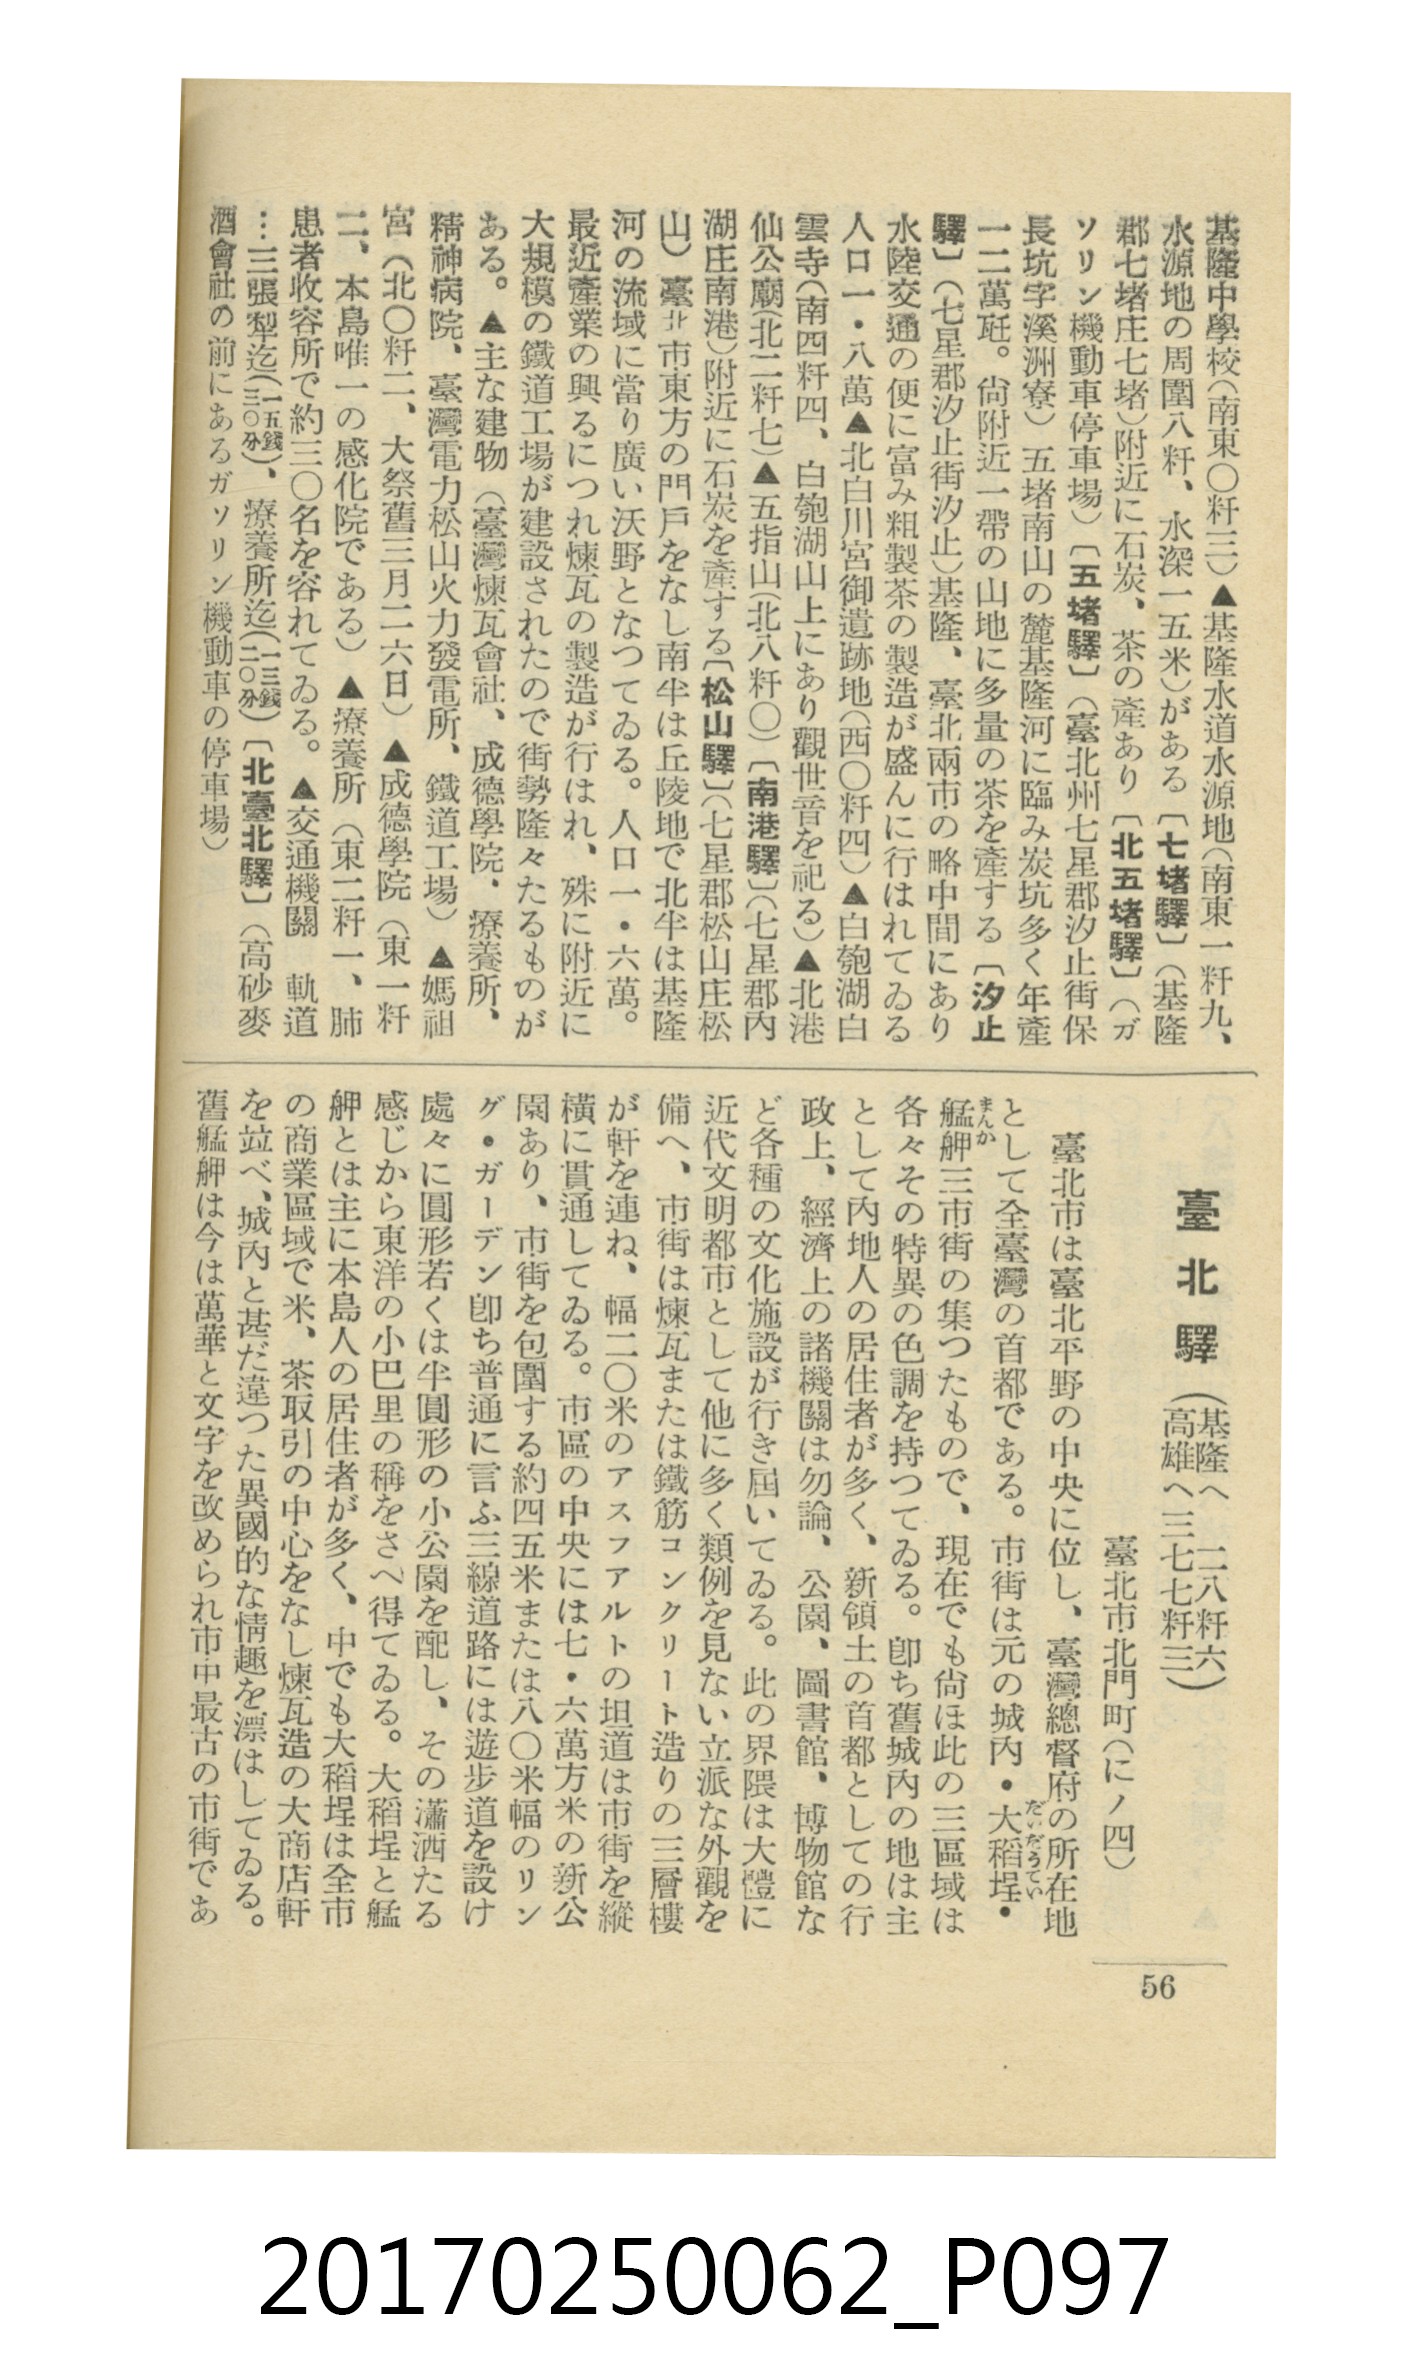 基隆中學校(南東〇粁三)▲基隆水道水源地(南東一粁九、
水源地の周圍八粁、水深一五米)がある〔七堵驛〕(基隆
郡七堵庄七堵)附近に石炭、茶の產あり〔北五堵驛〕(ガ
ソリン機動車停車場)〔五堵驛〕(臺北州七星郡汐止街保
長坑字溪洲寮)五堵南山の麓基隆河に臨み炭坑多く年產
一二萬瓩。尙附近一帶の山地に多量の茶を產する〔汐止
驛〕(七星郡汐止街汐止)基隆、臺北兩市の略中間にあり
水陸交通の便に富み粗製茶の製造が盛んに行はれてゐる
人口一・八萬▲北白川宮御遺跡地(西〇粁四)▲白匏湖白
雲寺(南四粁四、白匏湖山上にあり觀世音を祀る)▲北港
仙公廟(北二粁七)▲五指山(北八粁〇)〔南港驛〕(七星郡內
湖庄南港)附近に石炭を產する〔松山驛〕(七星郡松山庄松
山)臺北市東方の門戶をなし南半は丘陵地で北半は基隆
河の流域に當り廣い沃野となつてゐる。人口一・六萬。
最近產業の興るにつれ煉瓦の製造が行はれ、殊に附近に
大規模の鐵道工場が建設されたので街勢隆々たるものが
ある。▲主な建物(臺灣煉瓦會社、成德學院、療養所、
精神病院、臺灣電力松山火力發電所、鐵道工場)▲媽祖
宮(北〇粁二、大祭舊三月二六日)▲成德學院(東一粁
二、本島唯一の感化院である)▲療養所(東二粁一、肺
患者收容所で約三〇名を容れてゐる。▲交通機關 軌道
…三張犁迄(一五錢三〇分)、療養所迄(一三錢二〇分)〔北臺北驛〕(高砂麥
酒會社の前にあるガソリン機動車の停車場)
臺北驛(基隆へ 二八粁六)
(高雄へ三七七粁三)
臺北市北門町(にノ四)
臺北市は臺北平野の中央に位し、臺灣總督府の所在地
として全臺灣の首都である。市街は元の城內・大稻埕・
だいだうてい
艋舺三市街の集つたもので、現在でも尙ほ此の三區域は
まんか
各々その特異の色調を持つてゐる。卽ち舊城內の地は主
として內地人の居住者が多く、新領土の首都としての行
政上、經濟上の諸機關は勿論、公園、圖書館、博物館な
ど各種の文化施設が行き屆いてゐる。此の界隈は大體に
近代文明都市として他に多く類例を見ない立派な外觀を
備へ、市街は煉瓦または鐵筋コンクリート造りの三層樓
が軒を連ね、幅二〇米のアスフアルトの坦道は市街を縱
橫に貫通してゐる。市區の中央には七・六萬方米の新公
園あり、市街を包圍する約四五米または八〇米幅のリン
グ・ガーデン卽ち普通に言ふ三線道路には遊步道を設け
處々に圓形若くは半圓形の小公園を配し、その瀟洒たる
感じから東洋の小巴里の稱をさへ得てゐる。大稻埕と艋
舺とは主に本島人の居住者が多く、中でも大稻埕は全市
の商業區域で米、茶取引の中心をなし煉瓦造の大商店軒
を竝べ、城內と甚だ違つた異國的な情趣を漂はしてゐる。
舊艋舺は今は萬華と文字を改められ市中最古の市街であ
56
20170250062_P097